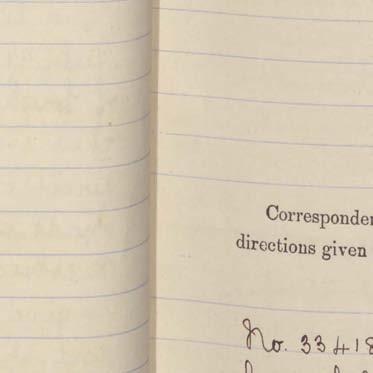 Corresponden
directions given
No. 33418